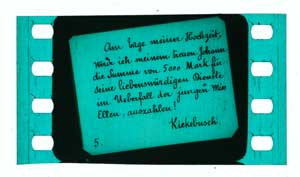 Am Tage meiner Hochzeit,
würde ich meinem treuen Johann
die Summe von 5000 Mark für
seine liebenswürdigen Dienste
im Ueberfall der jungen Miss
Ellen, auszahlen!
Kiekebusch.
5.